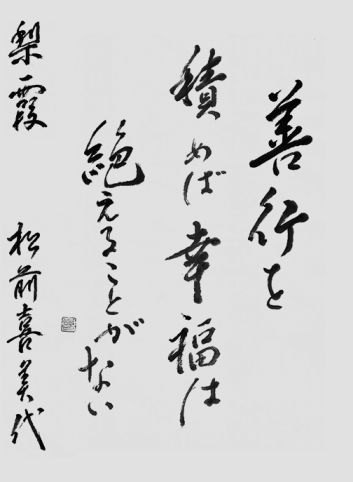 善行を
積めば幸福は
絶えることがない
梨霞　松前喜美代